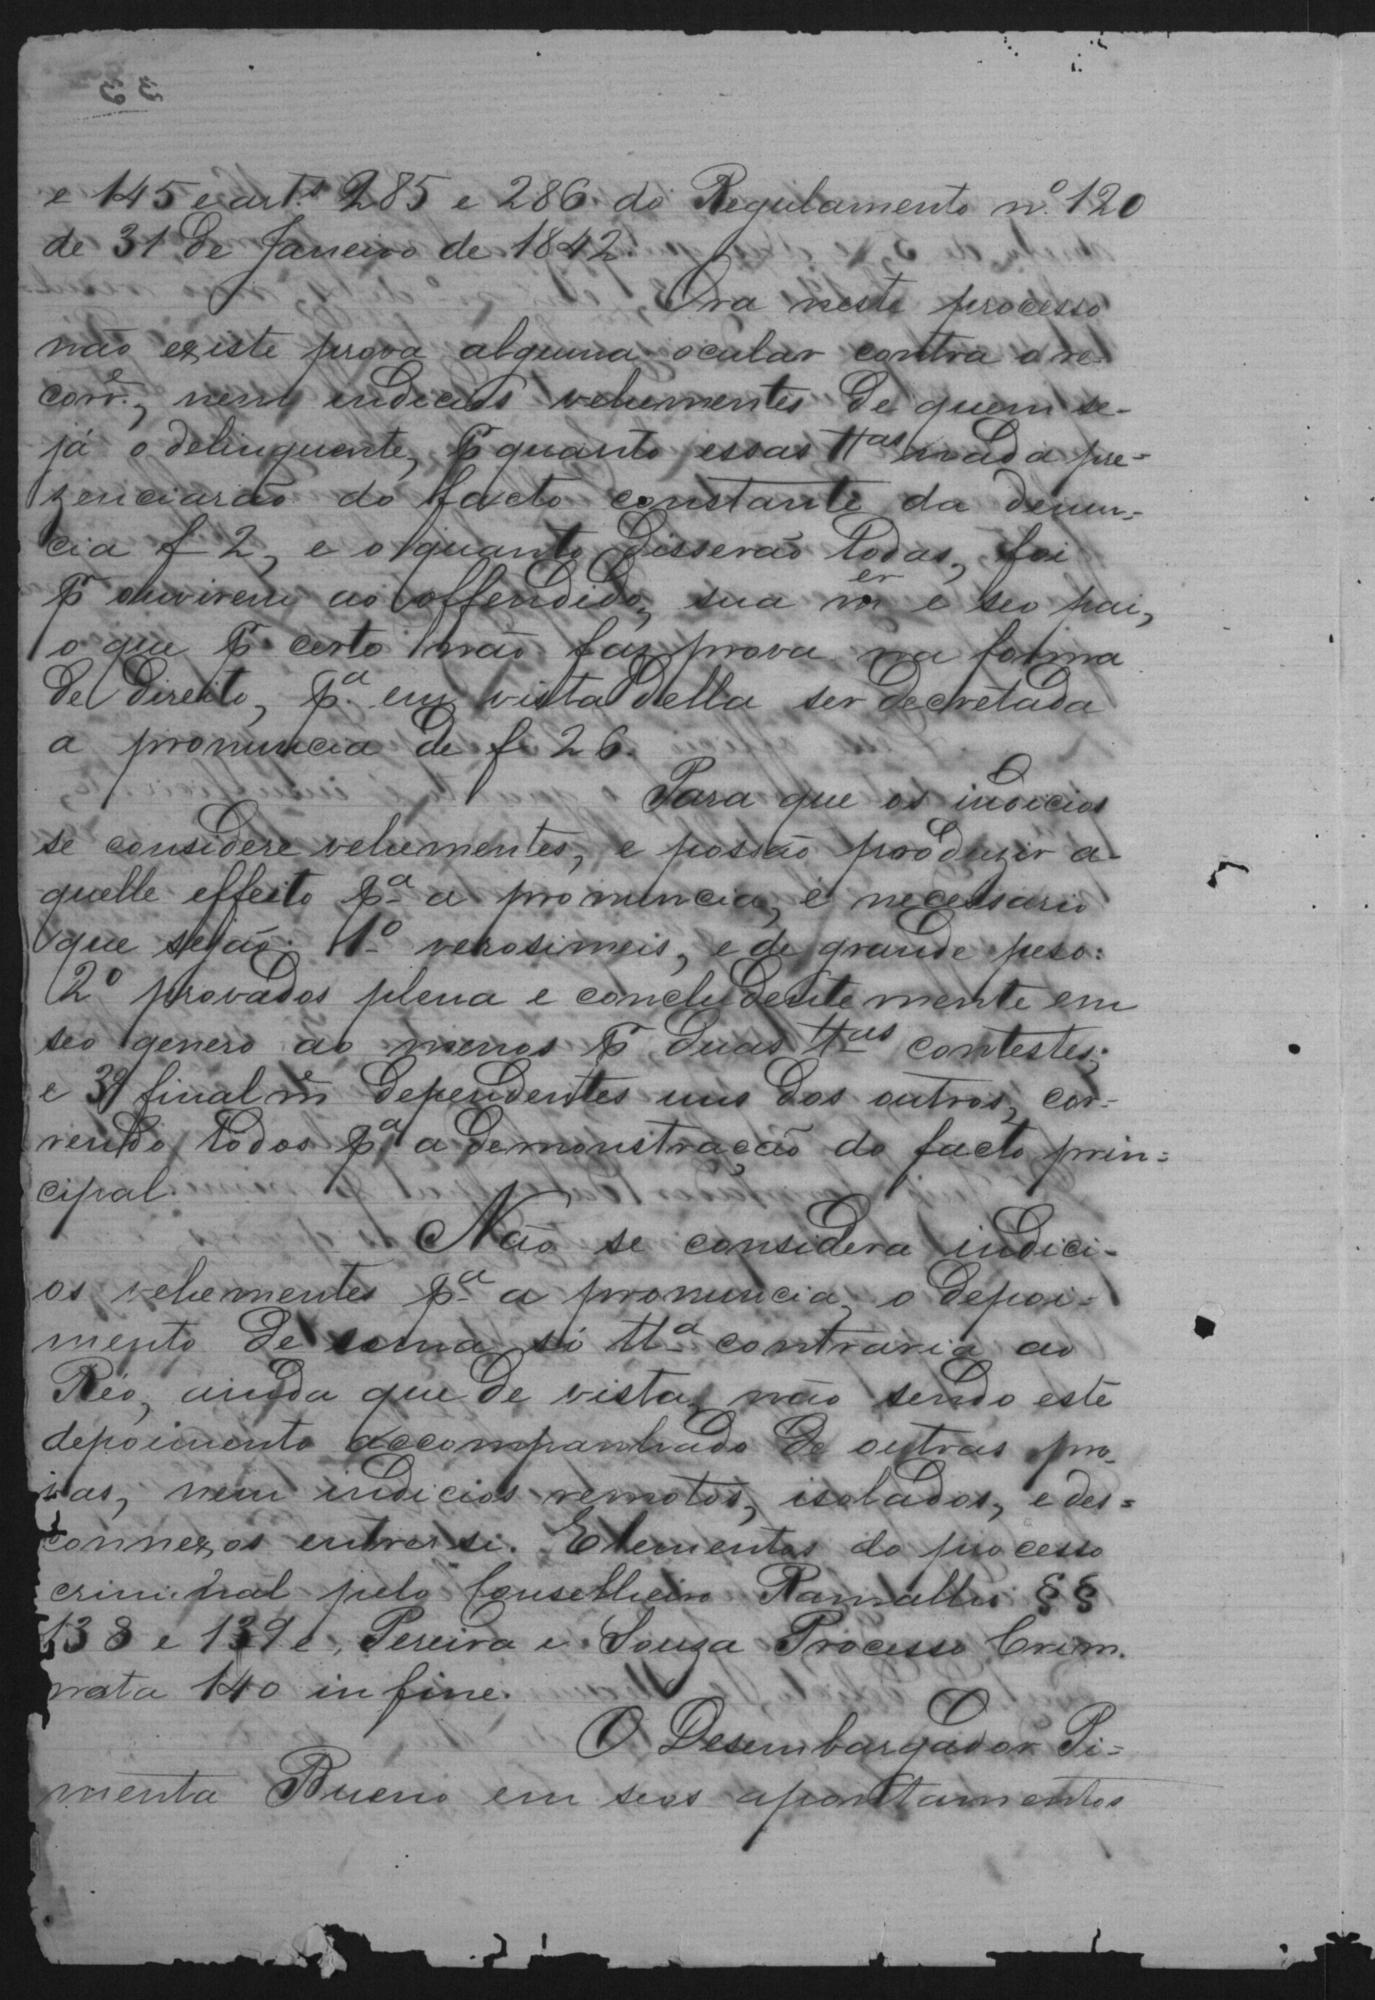 e 145 e art.s 285 e 286 do Regulamento n.º 120
de 31 de Janeiro de 1842.
Ora neste processo
não existe prova alguma ocular contra o re-
corr.e, nem indicios vehementes de quem se-
já o delinquente, p quanto essas ttas nada pre=
zenciarão do facto constante da denun-
cia f 2, e o quanto disserão todas, foi
p ouvirem ao offendido, sua mer e seo pai,
o que p certo não faz prova na forma
de direito, p.a em vista della ser decretada
a pronuncia de f 26.
Para que os indicios
se considere vehementes, e possão produzir a-
quelle effeito p.a a pronuncia, é necessario
que sejão: 1.º verosimeis, e de grande peso:
2º provados plena e concludentemente em
seo genero ao menos p duas ttas contestes;
e 3º finalme dependentes uns dos outros, cor-
rendo todos p.a a demonstração do facto prin=
cipal.
Não se considera indici-
os vehementes p.a a pronuncia, o depoi=
mento de uma só tta contraria ao
Réo, ainda que de vista, não sendo este
depoimento accompanhado de outras pro-
vas, nem indicios remotos, isolados, e des=
connexos entre si. Elementos do processo
criminal pelo Conselheiro Ramalho §§
138 e 139 e, Pereira e Souza Processo Crim.
nota 140 in fine.
O Desembargador Pi=
menta Bueno em seos apontamentos